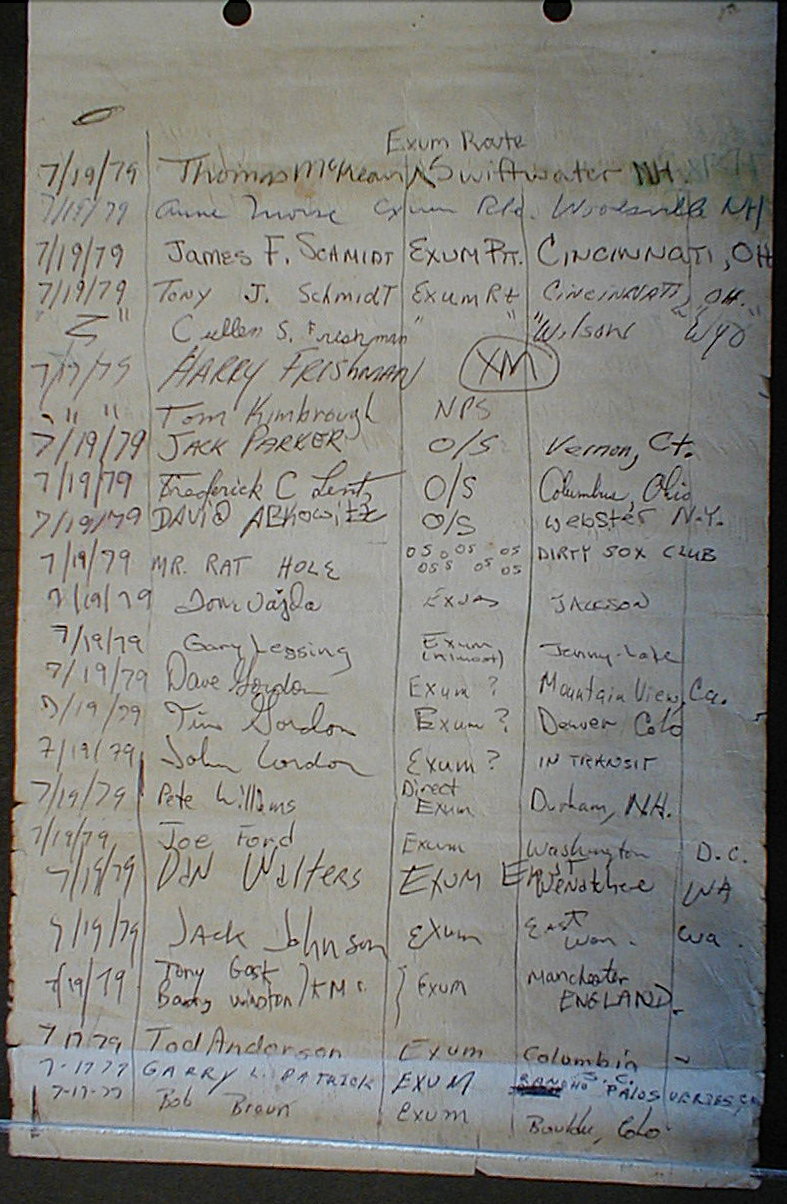 Exum Route
7/19/79 Thomas McKean Swiftwater NH.
7/19/79 Anne Exum Rte. Woodsville NH
7/19/79 JAMES F. SCHMIDT EXUM RT. CINCINNATI, OH
7/19/79 TONY J. SchmidT Exum Rt CINCINNATI, OH.
" " Cullen S. Frishman " " "Wilson "Wyo"
7/19/79 HARRY FRISHMAN XM
" " Tom Kimbrough NPS
7/19/79 JACK PARKER O/S Vernon, Ct.
7/19/79 Frederick C Lentz O/S Columbus, Ohio
7/19/79 DAVID ABKOWITZ O/S Webster N.Y.
7/19/79 MR. RAT HOLE OS OS DIRTY SOX CLUB
7/19/79 Tom Vajda JACKSON
7/19/79 Gary Lessing Exum Jenny Lake
7/19/79 Dave Gordon Exum ? Mountain View, Ca.
7/19/79 Tim Gordon Exum ? Denver Colo
7/19/79 John Gordon Exum ? IN TRANSIT
7/19/79 Pete Williams Direct Exum Durham, N.H.
7/19/79 Joe Ford Exum Washington D.C.
7/19/79 DAN WALTERS EXUM Wenatchee WA
7/19/79 JACK Johnson Exum EAST Wen. Wa.
7/19/79 Tony Winston } Exum Manchester ENGLAND.
7 17 79 Tod Anderson Exum Columbia
7-17-79 GARRY L. PATRICK EXUM RANCHO PALOS VERDES,
7-17-79 Bob Braun Exum Boulder, Colo